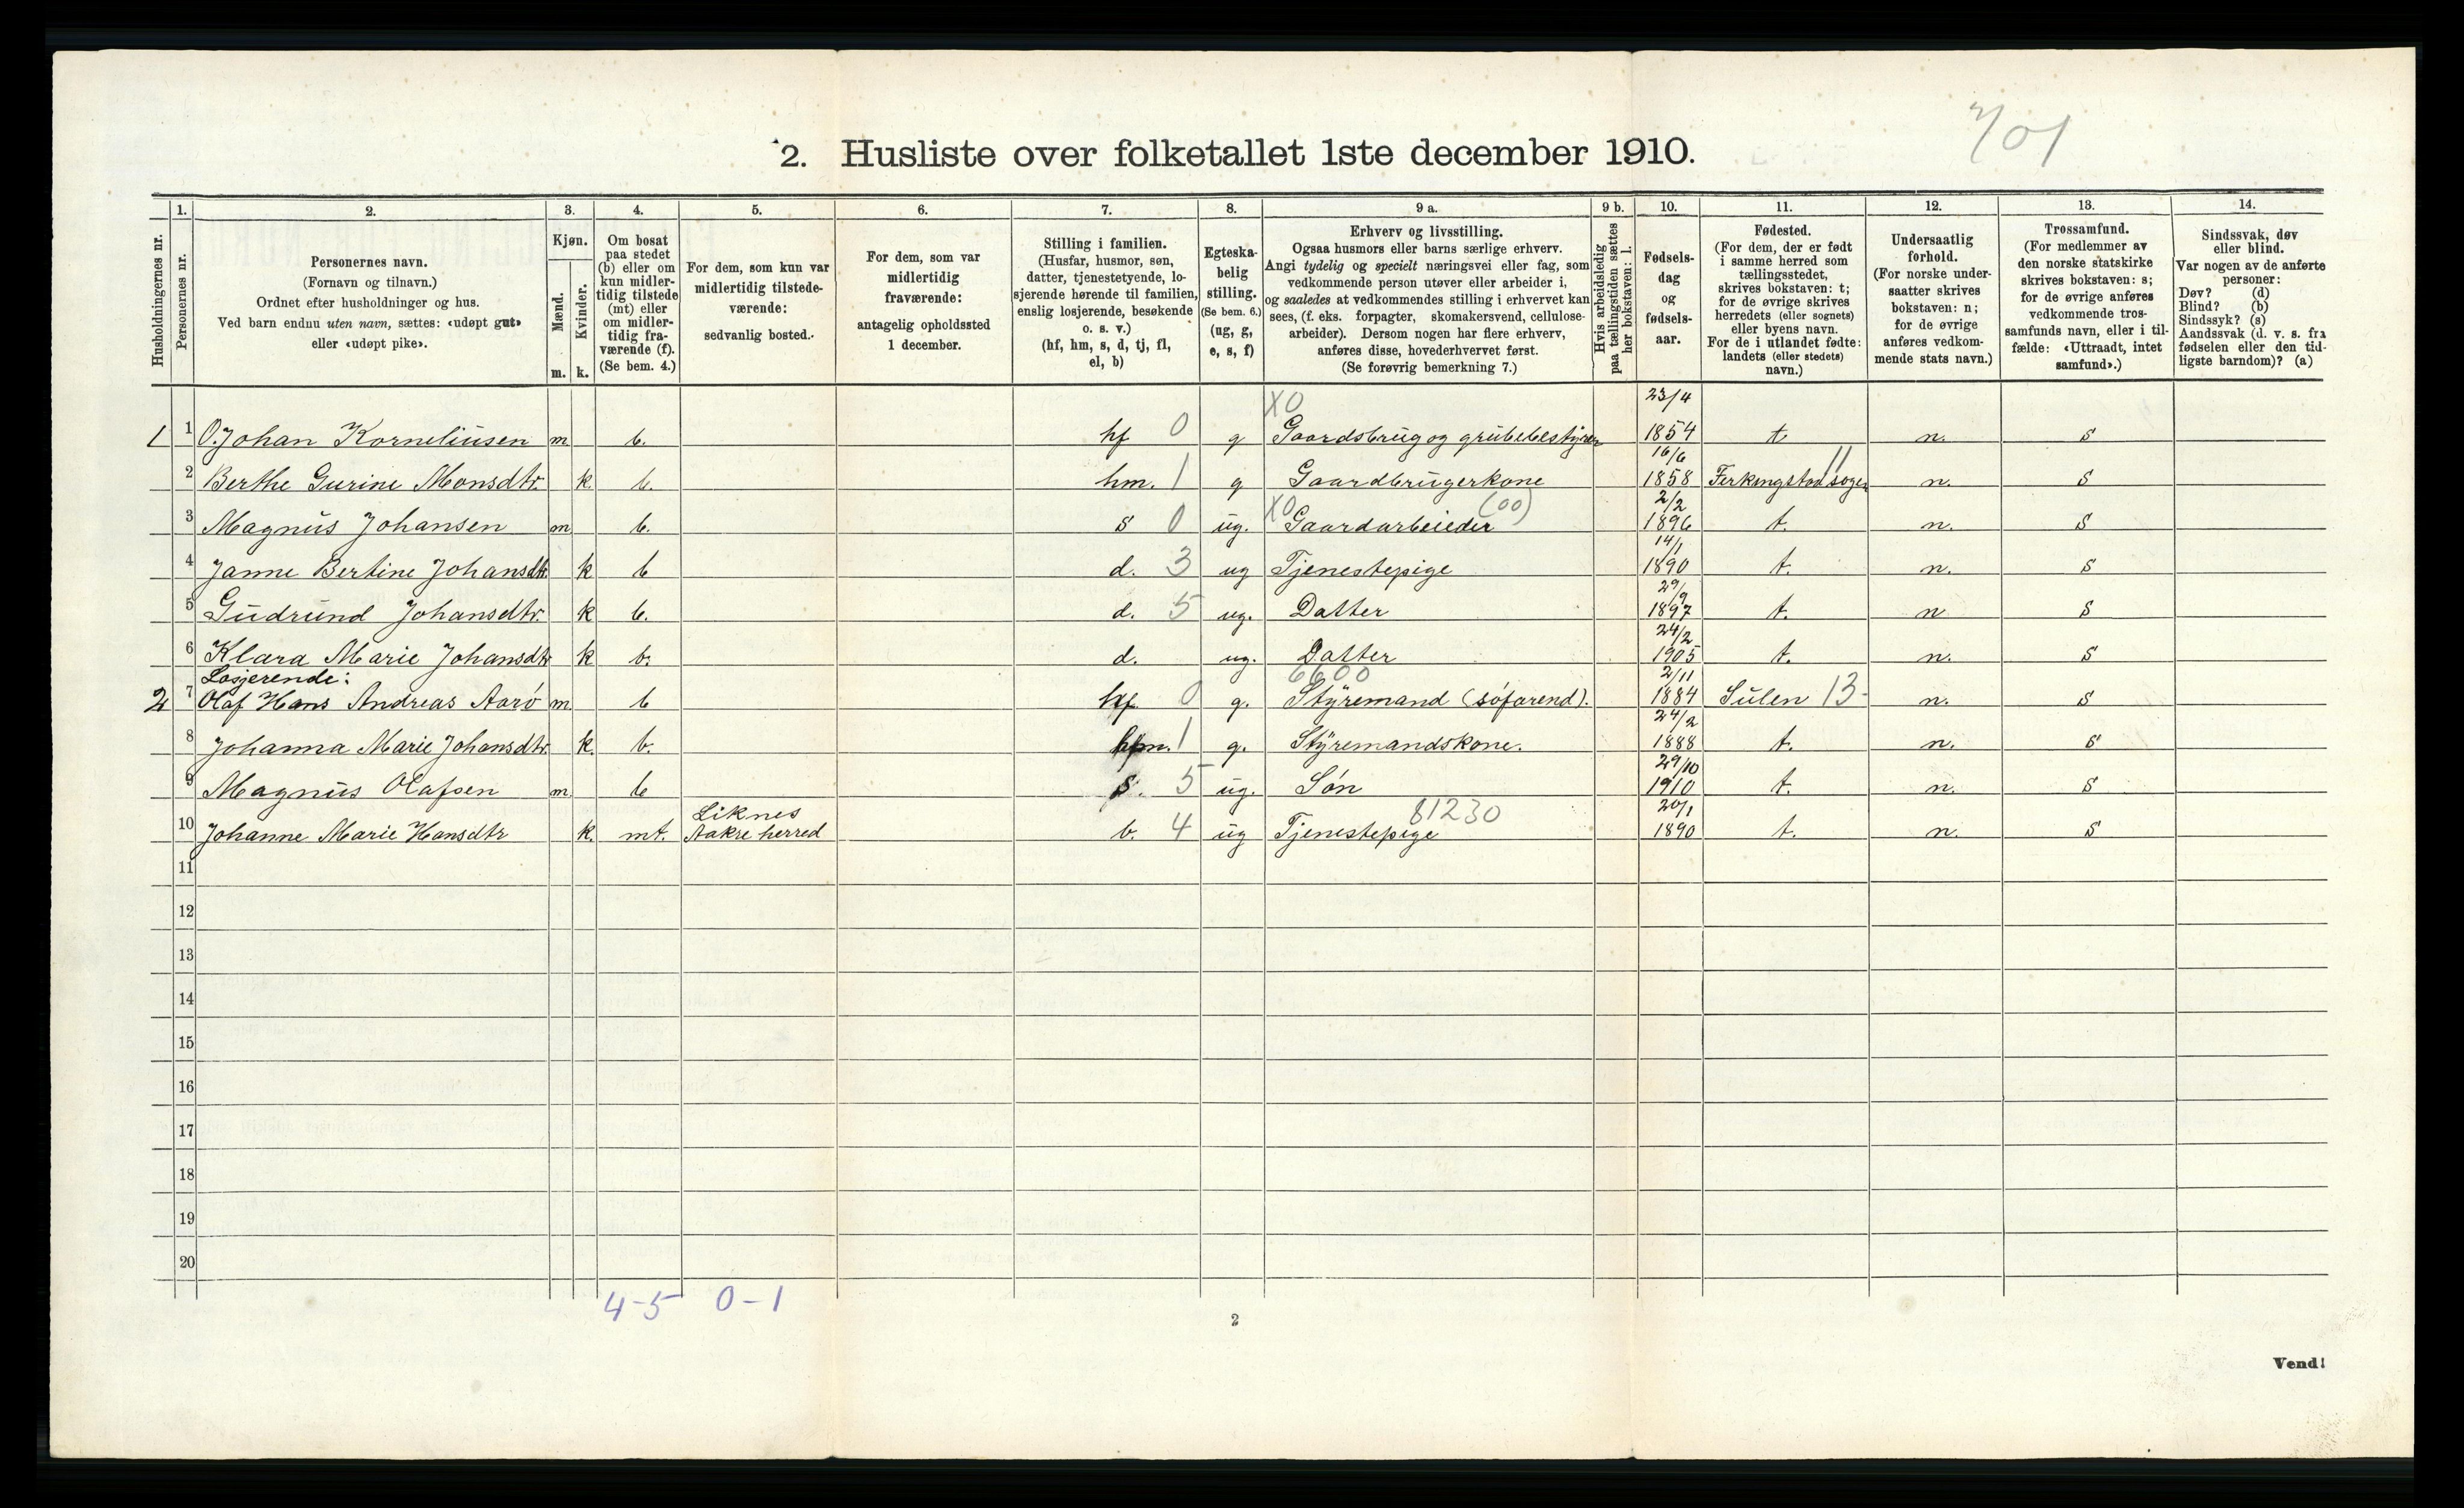 701
2. Husliste over folketallet 1ste december 1910.
Husholdningernes nr.
1.
Personernes nr.
2.
Personernes navn.
(Fornavn og tilnavn.)
Ordnet efter husholdninger og hus.
Ved barn endnu uten navn, sættes: «udøpt gut»
eller «udøpt pike».
3.
Kjøn.
Mænd.
Kvinder.
m. k.
4.
Om bosat
paa stedet
(b) eller om
kun midler-
tidig tilstede
(mt) eller
om midler-
tidig fra-
værende (f).
(Se bem. 4.)
5.
For dem, som kun var
midlertidig tilstede-
værende:
sedvanlig bosted.
6.
For dem, som var
midlertidig
fraværende:
antagelig opholdssted
1 december.
7.
Stilling i familien.
(Husfar, husmor, søn,
datter, tjenestetyende, lo-
sjerende hørende til familien,
enslig losjerende, besøkende
o. s. v.)
(hf, hm, s, d, tj, fl,
el, b)
8.
Egteska-
belig
stilling.
(Se bem. 6.)
(ug, g,
e, s, f)
9 a.
Erhverv og livsstilling.
Ogsaa husmors eller barns særlige erhverv.
Angi tydelig og specielt næringsvei eller fag, som
vedkommende person utøver eller arbeider i,
og saaledes at vedkommendes stilling i erhvervet kan
sees, (f. eks. forpagter, skomakersvend, cellulose-
arbeider). Dersom nogen har flere erhverv,
anføres disse, hovederhvervet først.
(Se forøvrig bemerkning 7.)
9 b.
Hvis arbeidsledig
paa tællingstiden sættes
her bokstaven: l.
10.
Fødsels-
dag
og
fødsels-
aar.
11.
Fødested.
(For dem, der er født
i samme herred som
tællingsstedet,
skrives bokstaven: t;
for de øvrige skrives
herredets (eller sognets)
eller byens navn.
For de i utlandet fødte:
landets (eller stedets)
navn.)
12.
Undersaatlig
forhold.
(For norske under-
saatter skrives
bokstaven: n;
for de øvrige
anføres vedkom-
mende stats navn.)
13.
Trossamfund.
(For medlemmer av
den norske statskirke
skrives bokstaven: s;
for de øvrige anføres
vedkommende tros-
samfunds navn, eller i til-
fælde: «Uttraadt, intet
samfund».)
14.
Sindssvak, døv
eller blind.
Var nogen av de anførte
personer:
Døv? (d)
Blind? (b)
Sindssyk? (s)
Aandssvak (d. v. s. fra
fødselen eller den tid-
ligste barndom)? (a)
X0 23/4
1 1 O. Johan Korneliusen m. b. hf 0 g Gaardsbrug og grubebestyrer 1854 t n. s
16/6 11
2 Berthe Gurine Monsdtr. k. b. hm. 1 g Gaardbrugerkone 1858 Ferkingstad sogn n. s
X0 (00) 2/2
3 Magnus Johansen m b. s 0 ug. Gaardarbeieder 1896 t. n. s
14/1
4 Janne Bertine Johansdtr. k b d. 3 ug Tjenestepige 1890 t. n. s
29/9
5 Gudrund Johansdtr. k b. d. 5 ug. Datter 1897 t. n s
24/2
6 Klara Marie Johansdtr k b. d. ug. Datter 1905 t. n. s
Losjerende: 6600 2/11
2 7 Olaf Hans Andreas Aarø m b hf 0 g. Styremand (søfarend). 1884 Sulen 13 n. s
24/2
8 Johanna Marie Johansdtr. k. b. hm. 1 g. Styremandskone. 1888 t. n. s
29/10
9 Magnus Olafsen m. b s. 5 ug. Søn 1910 t. n. s
Liknes 81230 20/1
10 Johanne Marie Hansdtr k. mt. Aakre herred b. 4 ug Tjenestepige 1890 t. n. s
11
12
13
14
15
16
17
18
19
20
4-5 0-1
2
Vend!